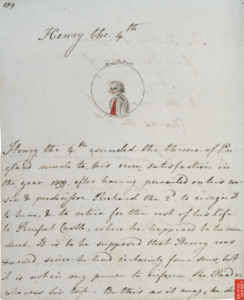 184
Henry the 4th
Henry the 4th ascended the throne of En
gland much to his own satisfaction in
the year 1399, after having prevailed on his cou
sin & predecessor Richard the 2d to resign it
to him, & to retire for the rest of his Life
to Pomfret Castle, where he happened to be mur
dered. It is to be supposed that Henry was
married, since he had certainly four sons, but
it is not in my power to inform the Read
er who was his Wife. Be this as it may, he did